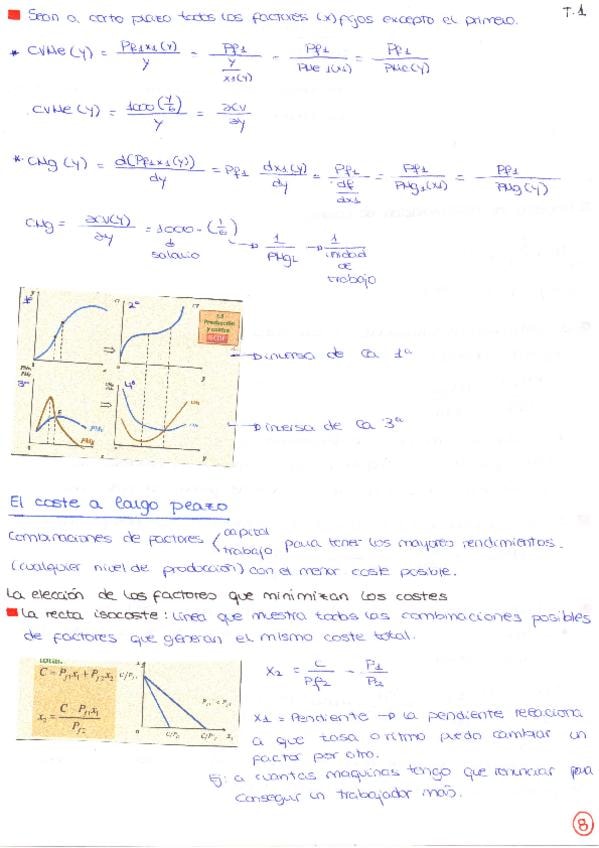 T.1
Sean a corto plazo todos los factores (x) fijos excepto el primero.
* CVMe(y) = Pf1x1(y) / y = Pf1 / (y / x1(y)) = Pf1 / PMe1(x1) = Pf1 / PMe(y)
CVMe(y) = 1000(y/6) / y = ∂CV / ∂y
* CMg(y) = d(Pf1x1(y)) / dy = Pf1 dx1(y) / dy = Pf1 / (df / dx1) = Pf1 / PMg1(x1) = Pf1 / PMg(y)
CMg = ∂CV(y) / ∂y = 1000 · (1/6) → 1 / PMgL → 1 / unidad de trabajo
↓ salario
2ª
1.3 Producción y costes
⇒
→ inversa de la 1ª
3ª
4ª
⇒
→ inversa de la 3ª
El coste a largo plazo
Combinaciones de factores < capital trabajo para tener los mayores rendimientos.
(cualquier nivel de producción) con el menor coste posible.
La elección de los factores que minimizan los costes
La recta isocoste: Línea que muestra todas las combinaciones posibles
de factores que generan el mismo coste total.
total.
C = Pf1x1 + Pf2x2
x2 = C Pf1x1 / Pf2
C/Pf2
x1
x2 = C / Pf2 - P1 / P2
x1 = Pendiente → la pendiente relaciona
a que tasa o ritmo puedo cambiar un
factor por otro.
Ej: a cuantas maquinas tengo que renunciar para
conseguir un trabajador más.
8